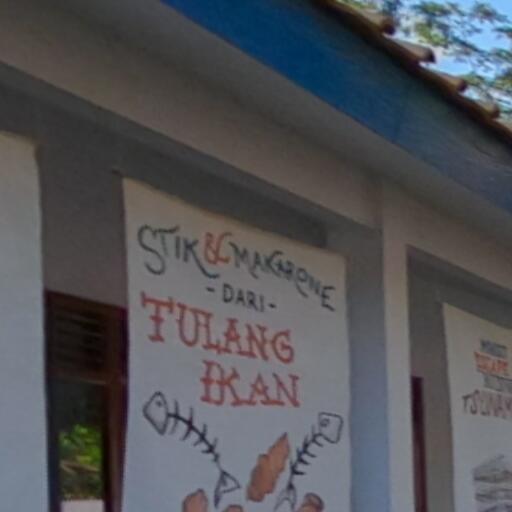 STIK & MAKARONE
- DARI -
TULANG
IKAN
TSUNAM